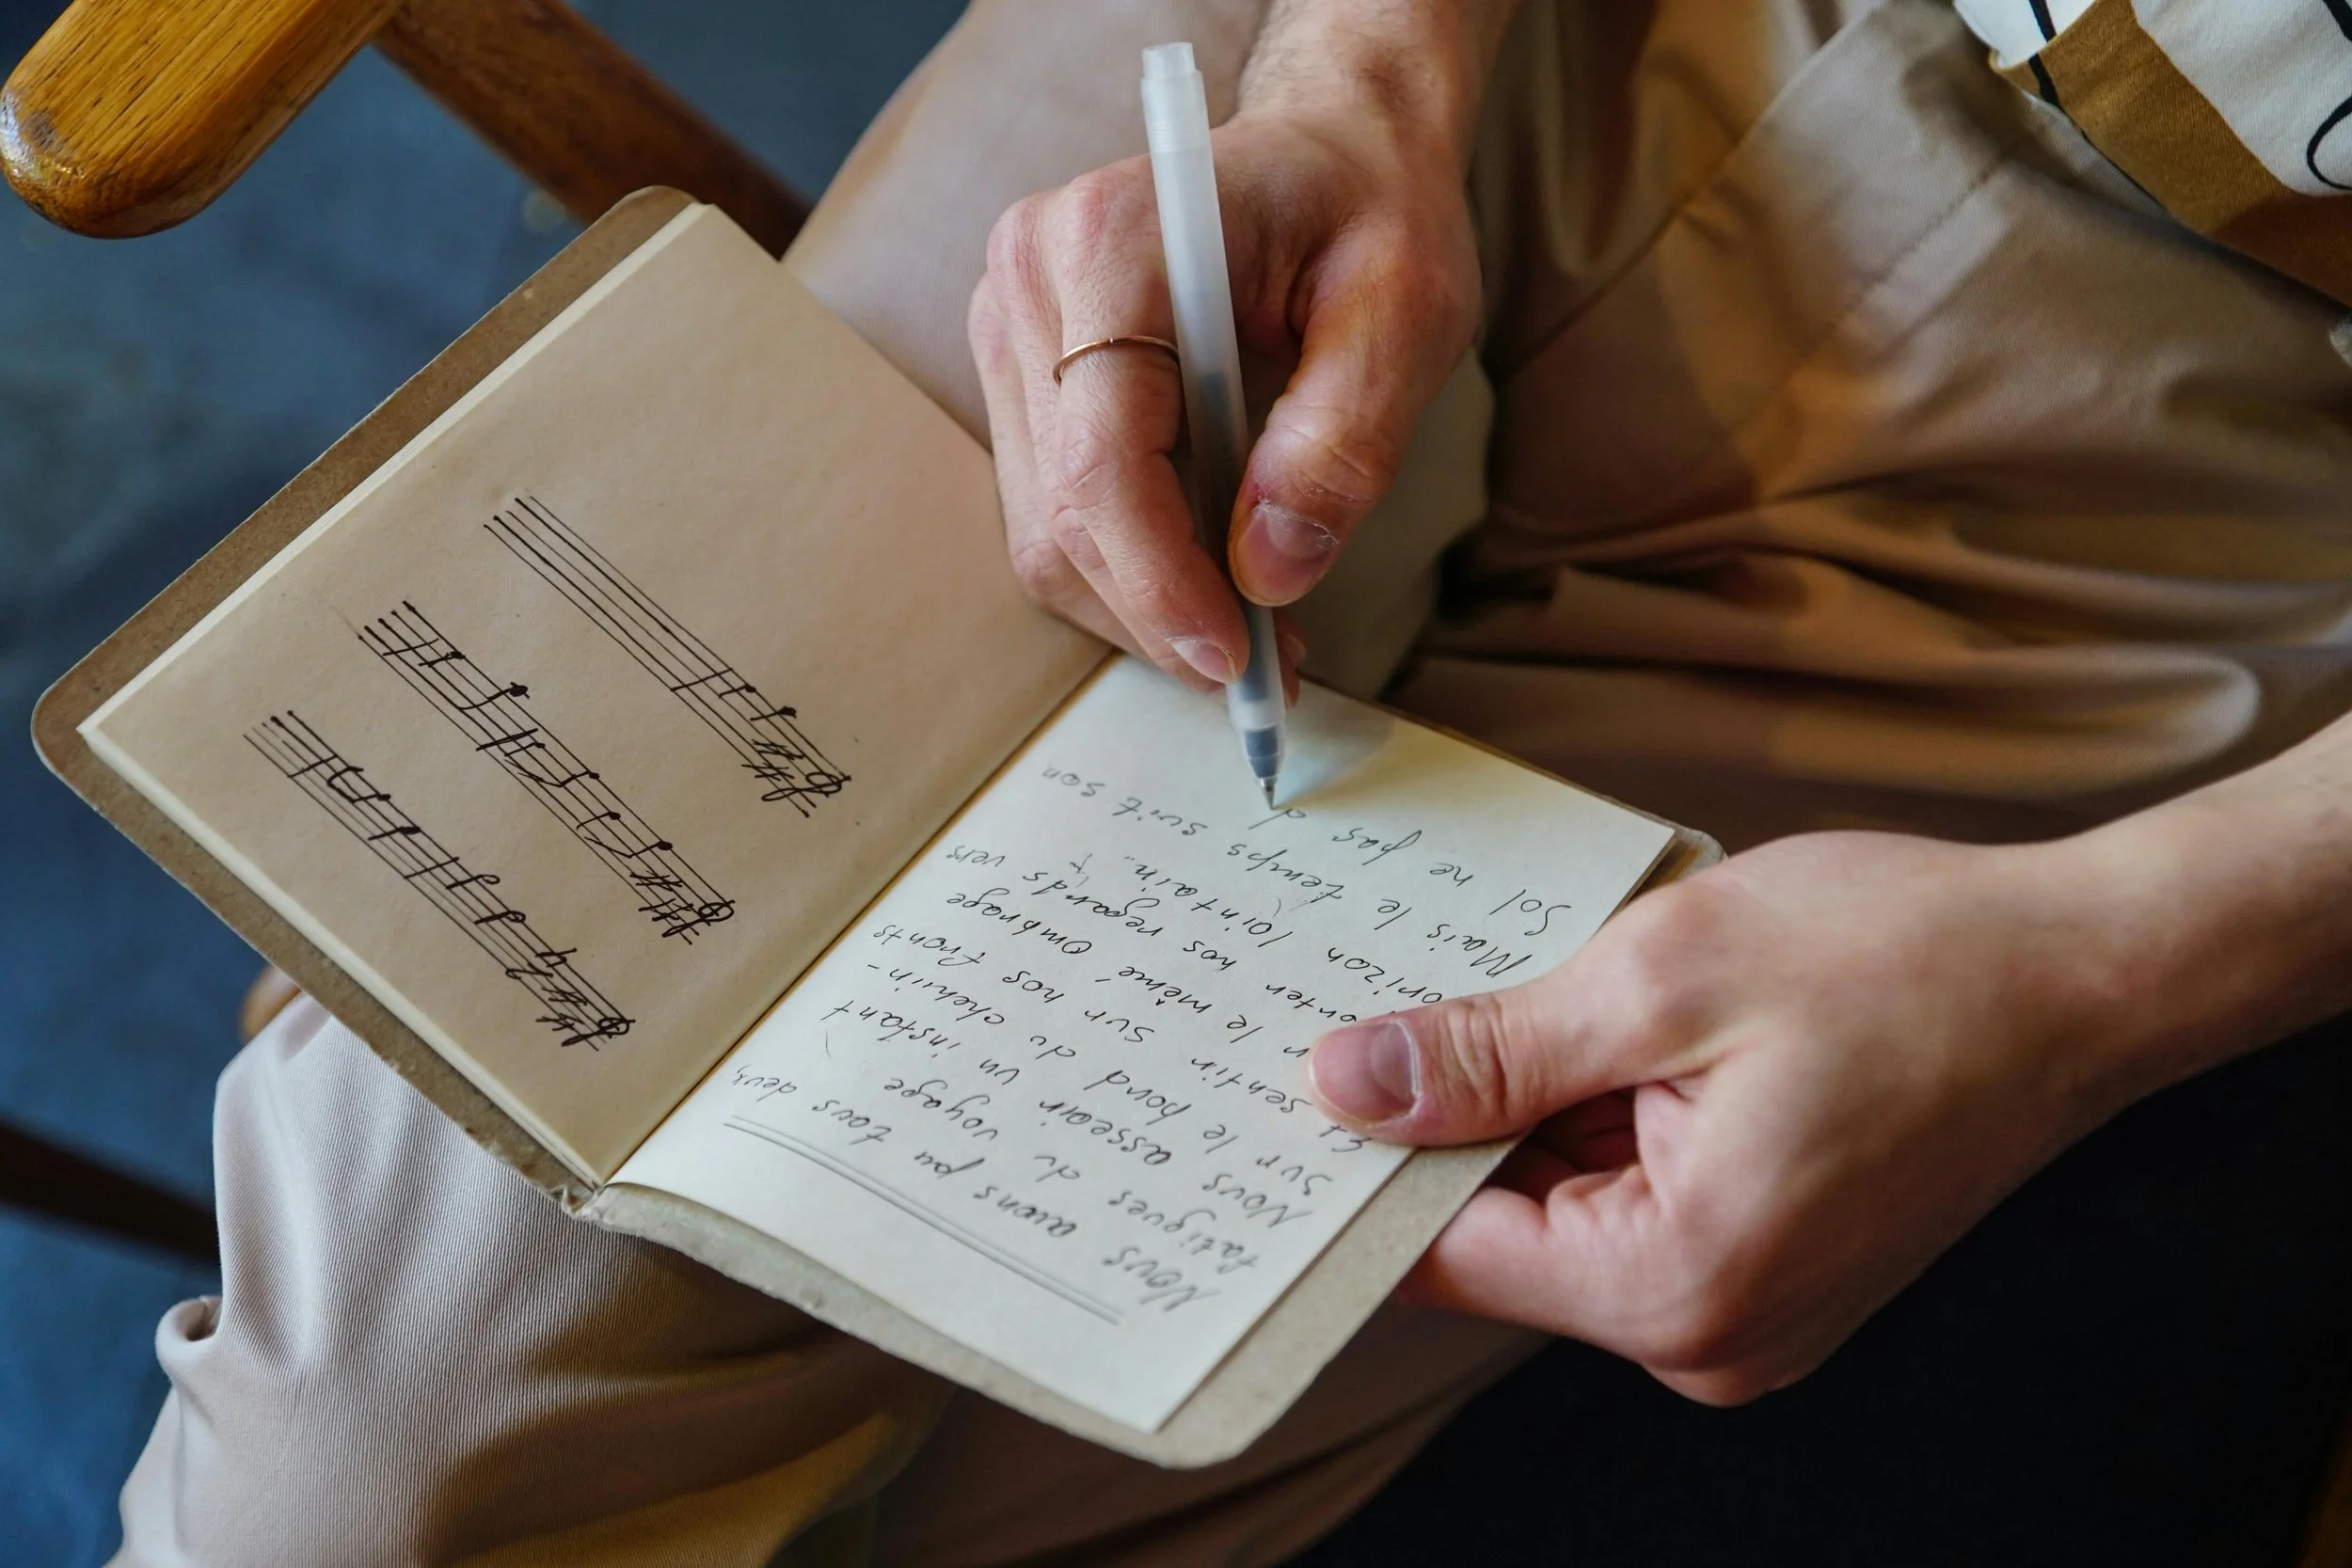 Nous avons pu tous deux,
fatigues du voyage
Nous asseoir un instant
sur le bord du chemin-
Et sentir sur nos fronts
le même ombrage
nos regards vers
orizon lointain...
Mais le temps suit son
Sol ne pas d